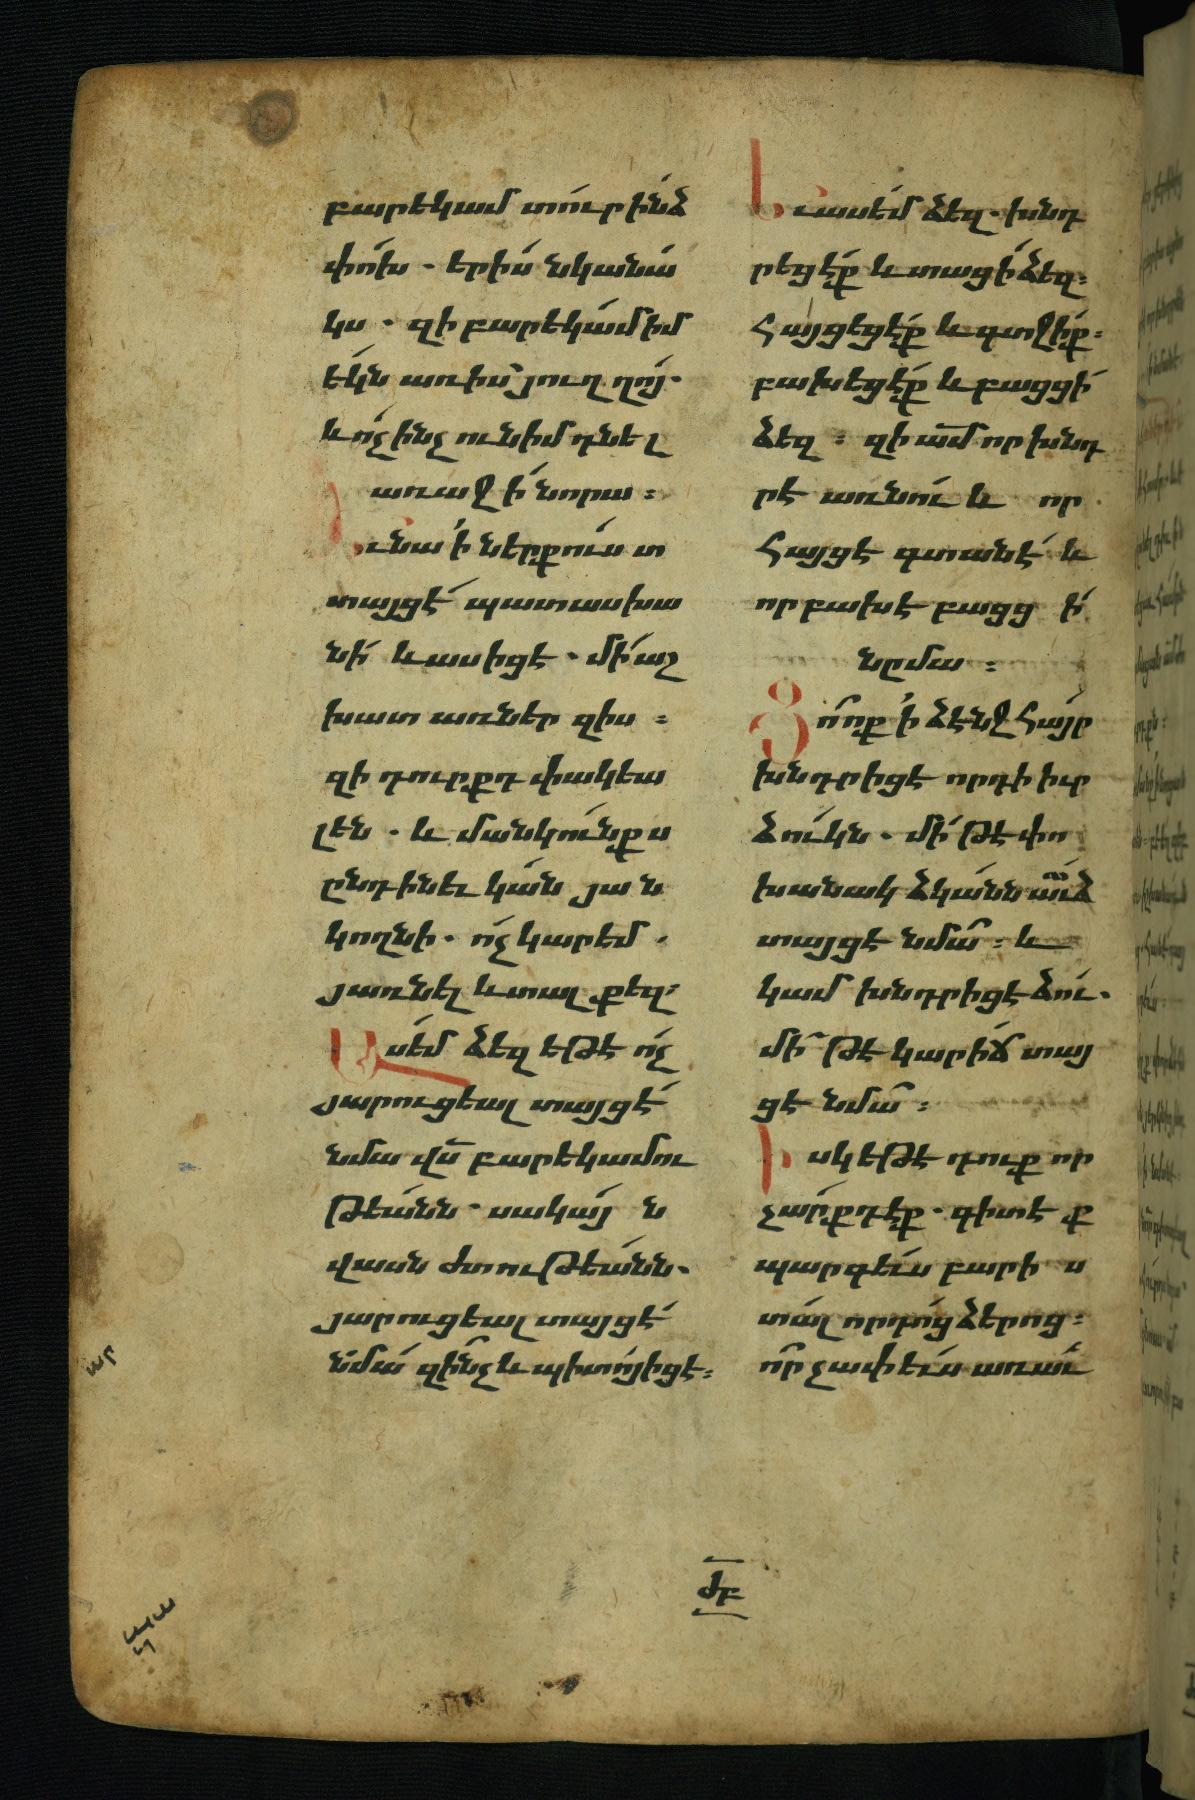 բարեկամ տուր ինձ
փոխ . երիս նկանա
կս . զի բարեկամ իմ
եկն առ իս յուղղոյ .
և ոչ ինչ ունիմ դնել
առաջի նորա :
Եւ նա ի ներքուստ
տայցէ պատասխա
նի և ասիցէ . մի աշ
խատ առներ զիս :
զի դուրքդ փակեա
լեն . և մանկունքս
ընդ ինեւ կան յան
կողնի . ոչ կարեմ .
յառնել և տալ քեզ :
Ասեմ ձեզ եթէ ոչ
յարուցեալ տայցէ
նմա վս բարեկամու
թեանն . սակայն
վասն ժտութեանն .
յարուցեալ տայցէ
նմա զինչ և պիտոյ իցէ :
Եւ ասեմ ձեզ . խնդ
րեցէք և տացի ձեզ :
Հայցեցէք և գտջիք :
բախեցէք և բացցի
ձեզ : զի ամ որ խնդ
րէ առնու և որ
Հայցէ գտանէ և
որ բախէ բացցի
նըմա :
Զո ոք ի ձէնջ Հայր
խնդրիցէ որդի իւր
ձուկն . մի թէ փո
խանակ ձկանն աւձ
տայցէ նմա : և
կամ խնդրիցէ ձու .
մի թէ կարիճ տայ
ցէ նմա :
Իսկ եթէ դուք որ
չարքդ էք . գիտէք
պարգեւս բարիս
տալ որդոց ձերոց :
որ չափ ևս առաւ
ԺԲ